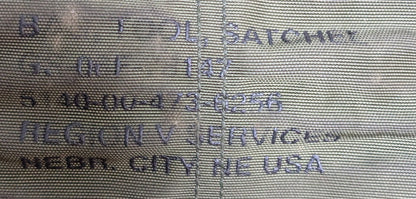 BAG, TOOL, SATCHEL
5140-00-473-6256
REGION V SERVICES
NEBR. CITY, NE USA